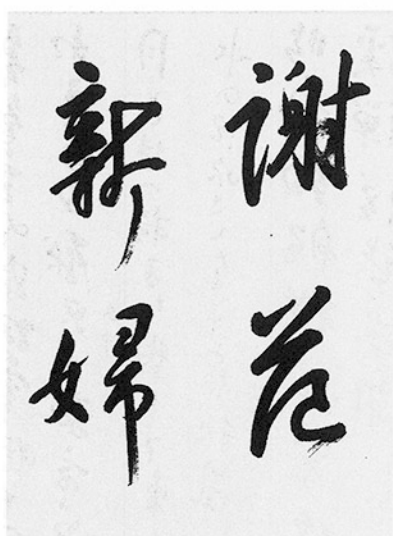 謝范
新婦